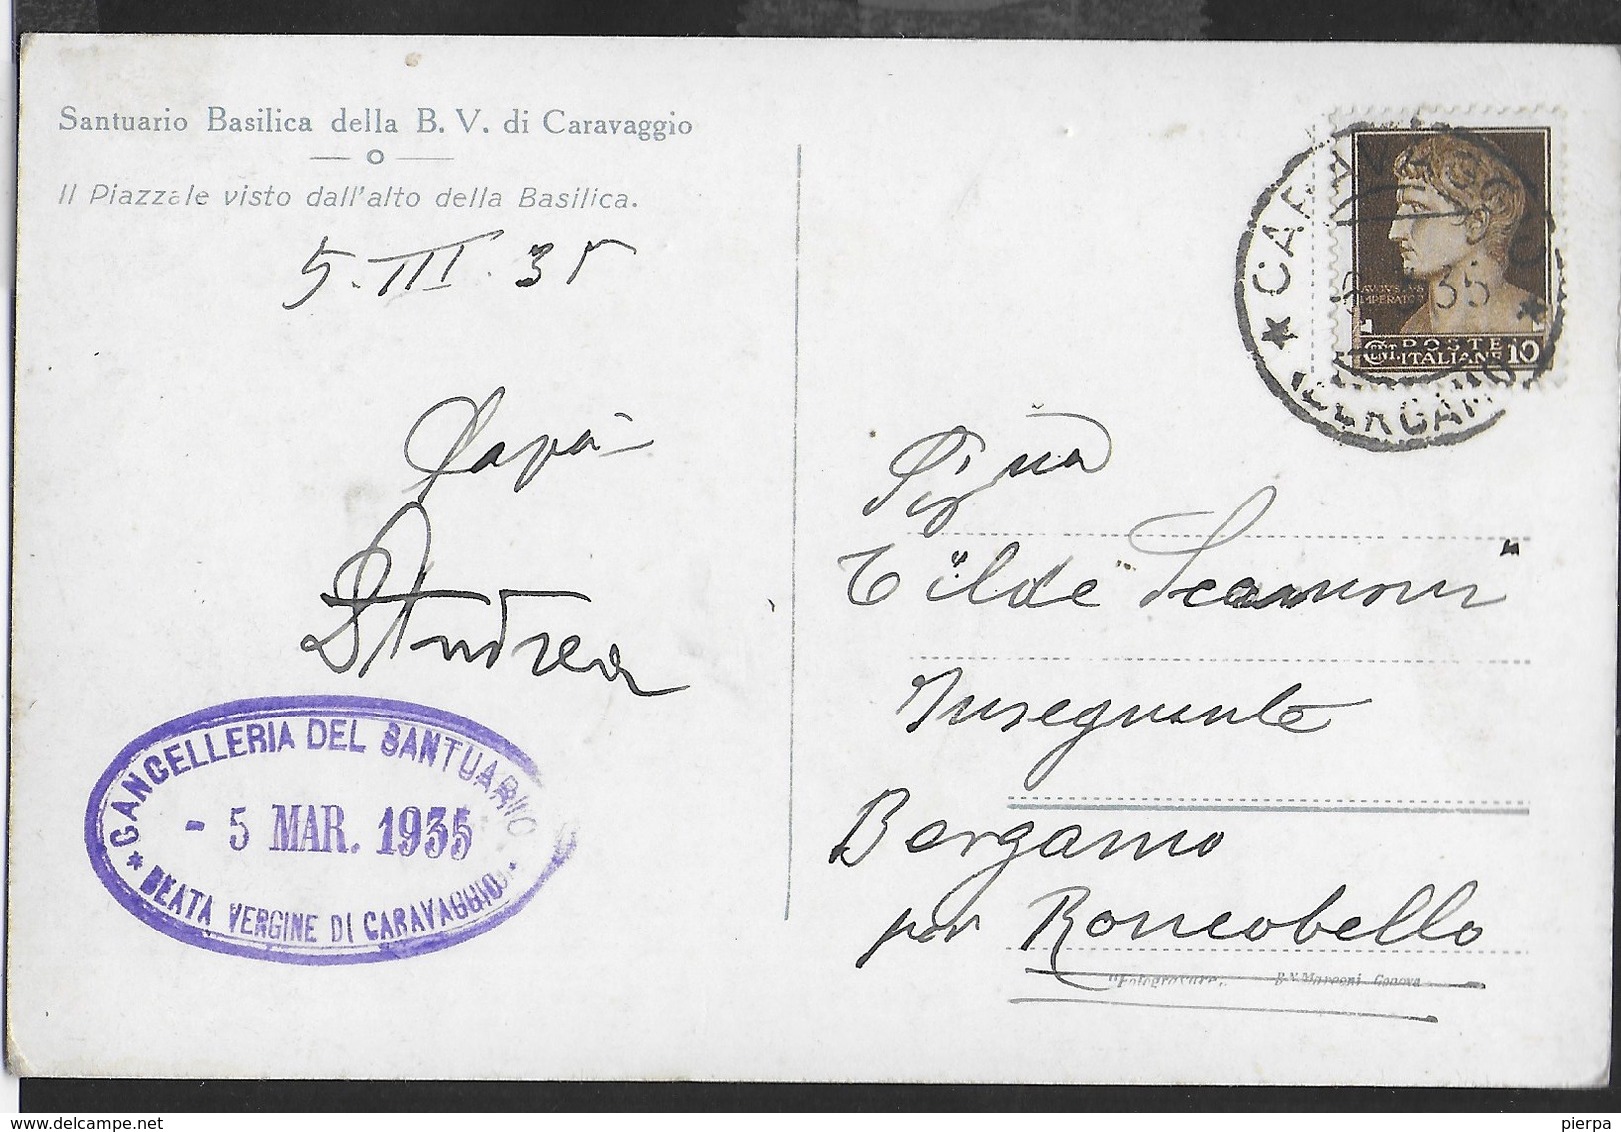 Santuario Basilica della B. V. di Caravaggio
Il Piazzale visto dall'alto della Basilica.
5. III. 35
Papà
D Andrea
CANCELLERIA DEL SANTUARIO
- 5 MAR. 1935
BEATA VERGINE DI CARAVAGGIO
CARAVAGGIO
35
BERGAMO
AVGVSTVS
IMPERATOR
CENT. POSTE ITALIANE 10
Sig.na
Tilde
Insegnante
Bergamo
per Roncobello
"Fotogravure" B. N. Marconi Genova
pierpa